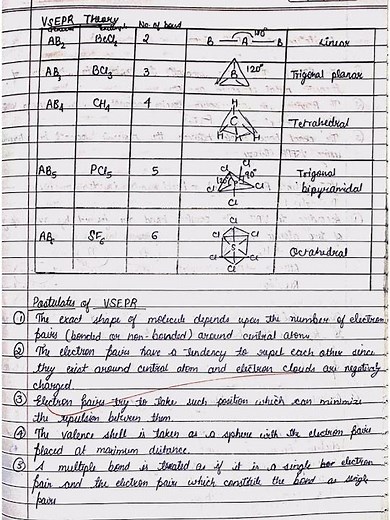 VSEPR Theory
No. of bond
AB2 BeCl2 2 B A B 180° Linear
AB3 BCl3 3 B 120° Trigonal planar
AB4 CH4 4 H C H H H Tetrahedral
AB5 PCl5 5 Cl Cl 90° 120° Cl Cl Cl Trigonal
bipyramidal
SF6 6 Cl Cl Cl S Cl Cl Cl Octahedral
Postulates of VSEPR
① The exact shape of molecule depends upon the number of electron
pairs (bonded or non-bonded) around central atom.
② The electron pairs have a tendency to repel each other since
they exist around central atom and electron clouds are negatively
charged.
③ Electron pairs try to take such position which can minimize
the repulsion between them.
④ The valence shell is taken as a sphere with the electron pairs
placed at maximum distance.
⑤ A multiple bond is treated as if it is a single electron
pair and the electron pair which constitute the bond as single
pair